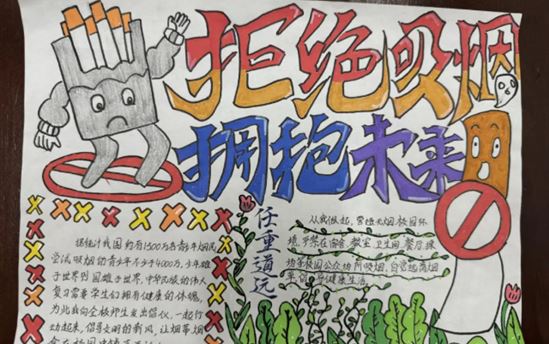 拒绝吸烟
拥抱未来
任重道远
据统计我国约有1500万名青年烟民
尝试吸烟的青少年不少于4000万,少年雄
于世界则国雄于世界,中华民族的伟大
复习需要学生们拥有健康的体魄,
为此我向全校师生发出倡仪,一起行
动起来,倡导文明的新风,让烟蒂烟
从我做起,营造无烟校园环
境,严禁在宿舍、教室、卫生间、餐厅、操
场等校园公众场所吸烟,自觉远离烟
草,倡导健康生活。